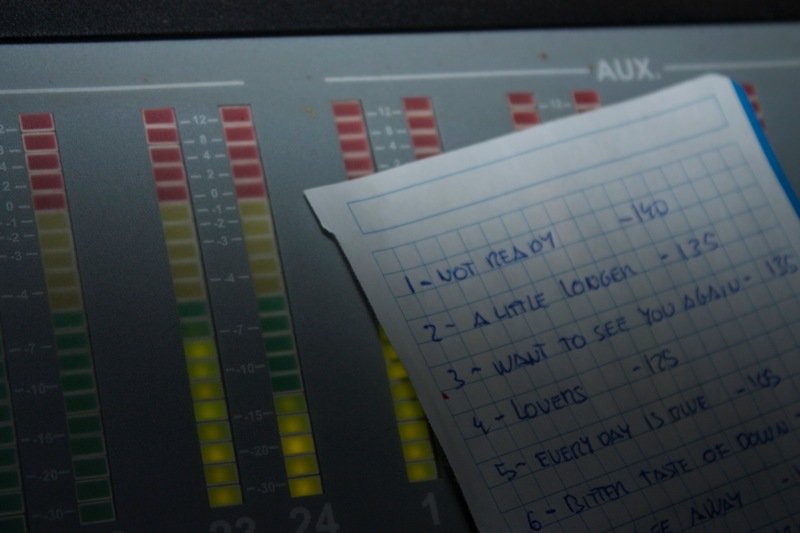 AUX.
12 8 4 2 0 -1 -2 -3 -4 -7 -10 -15 -20 -30
23 24 1
1- NOT READY -140
2- A LITTLE LONGER -135
3- WANT TO SEE YOU AGAIN- 135
4- LOVERS -125
5- EVERY DAY IS DUE -105
6- BITTER TASTE OF DOWN -
AWAY